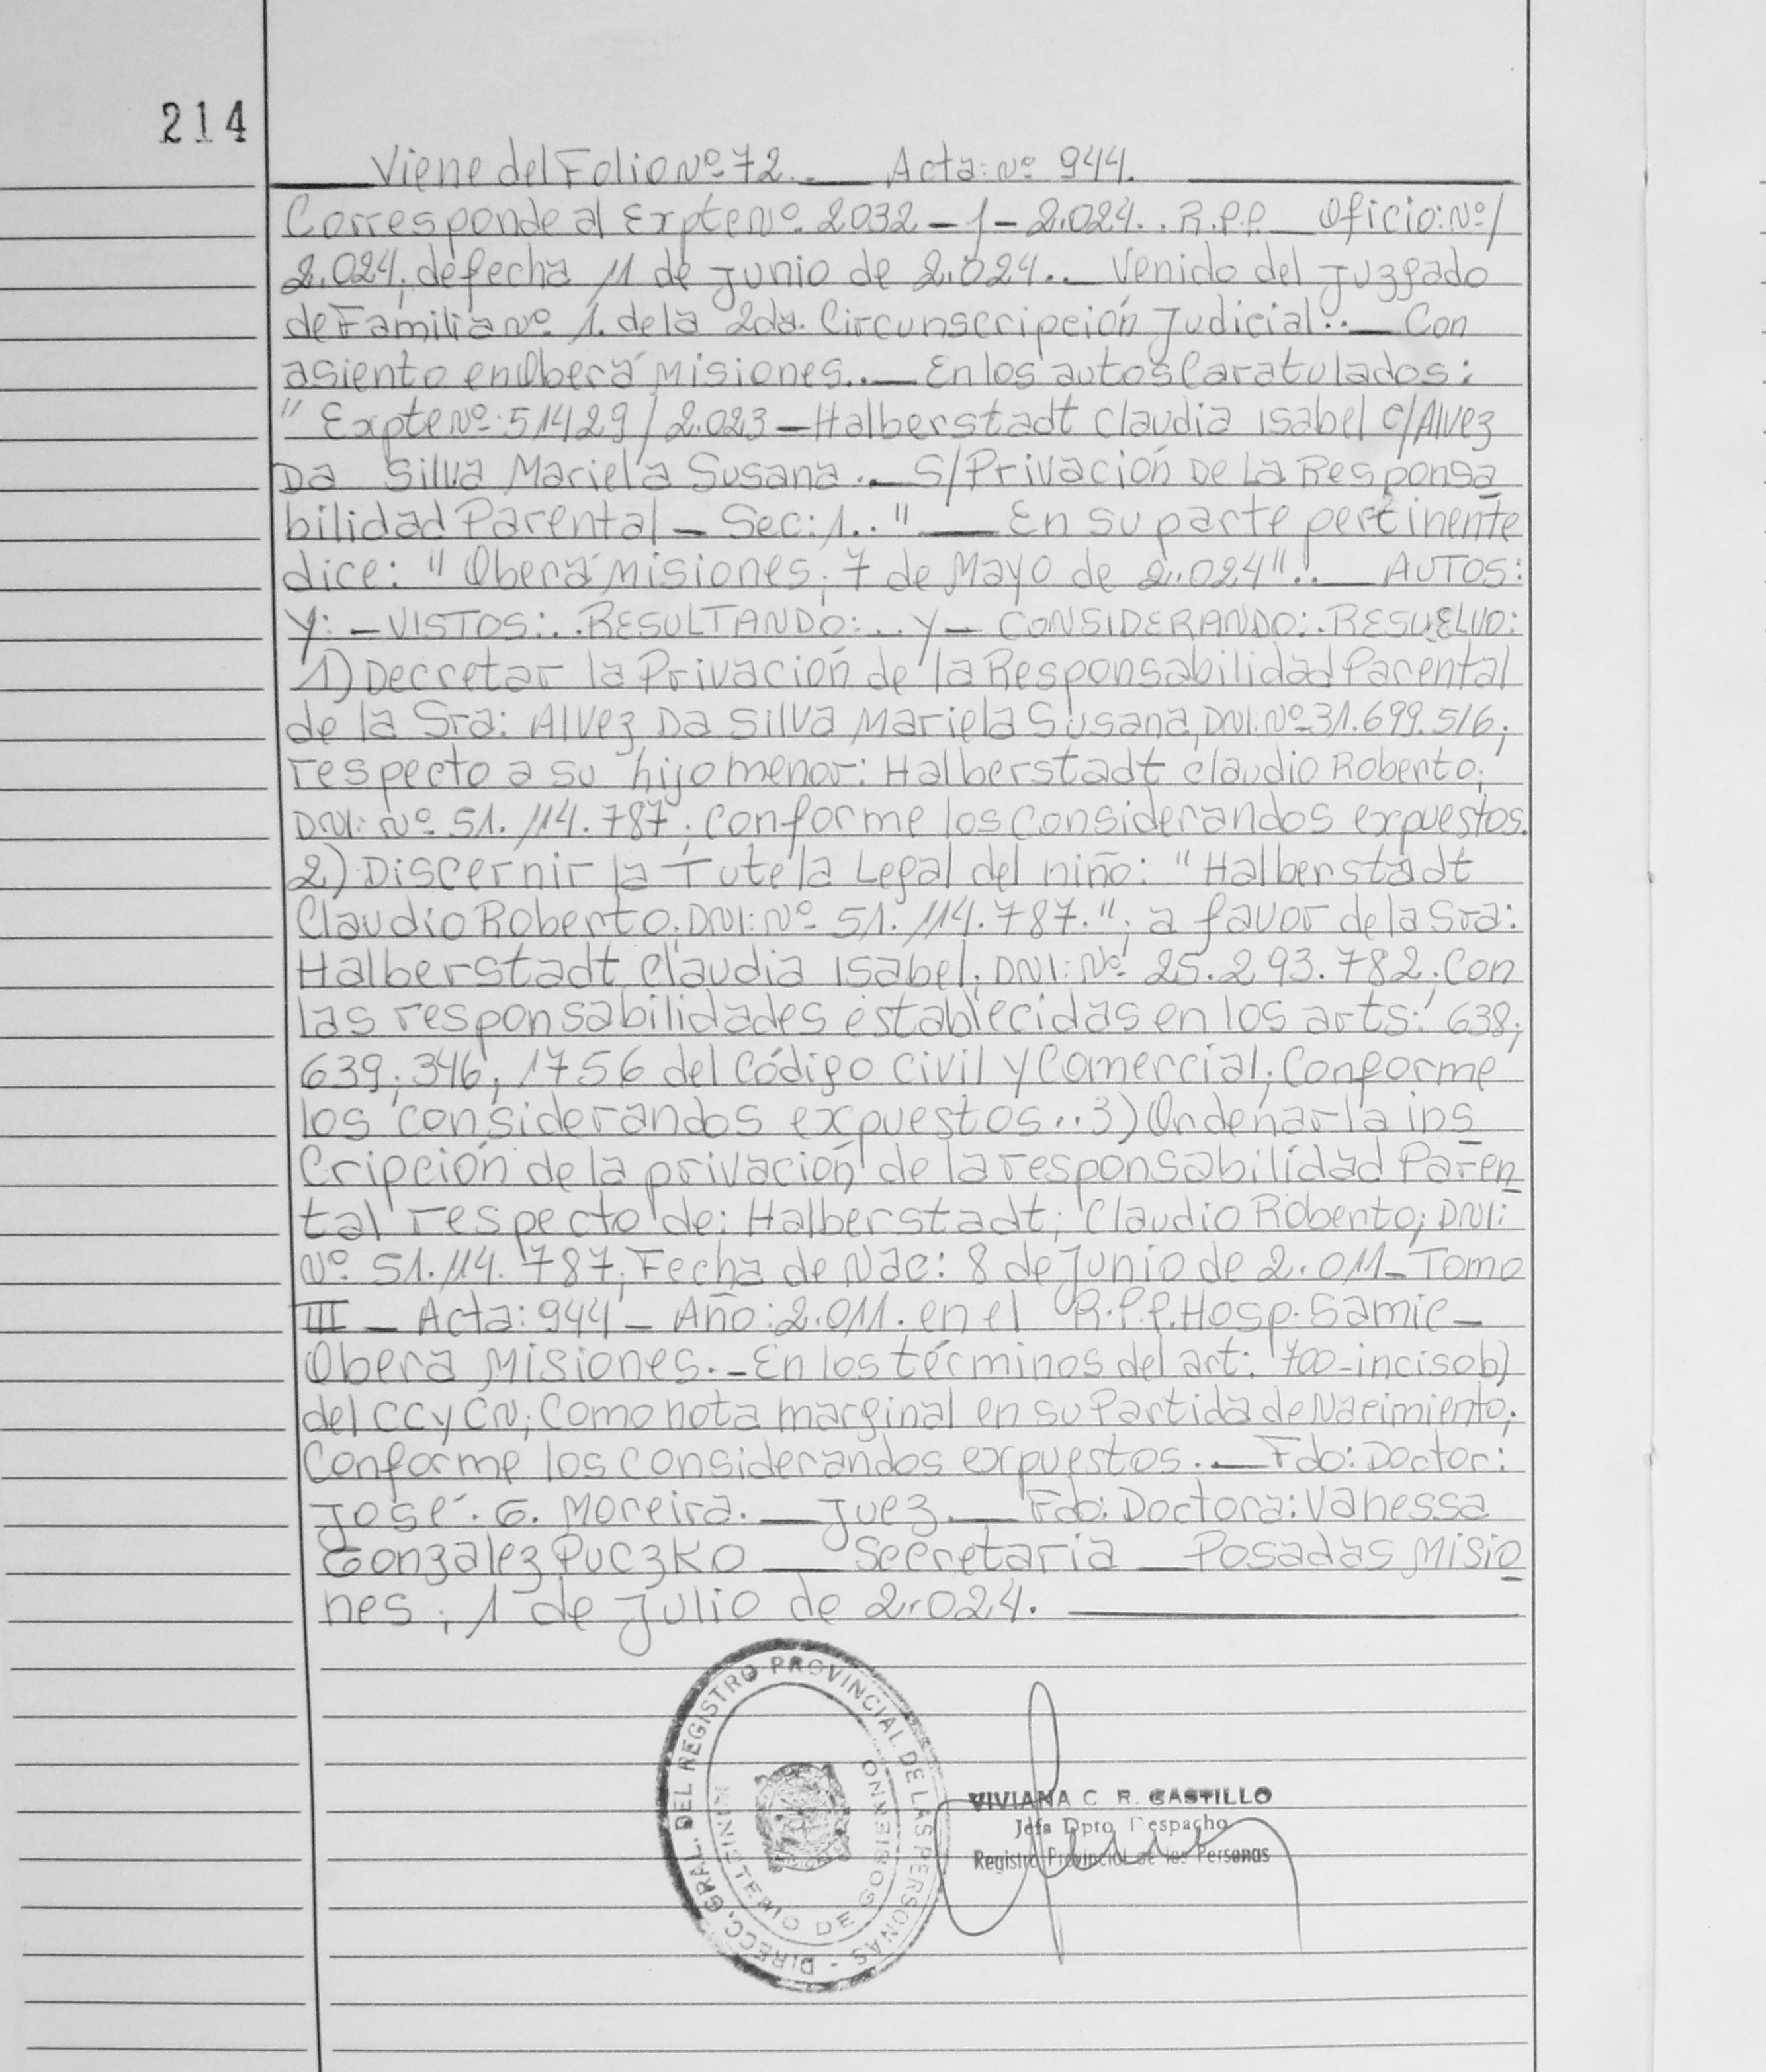 214
Viene del Folio Nº 72.. Acta: Nº 944.
Corresponde al Expte Nº. 2032-1-2.024.. R.P.P. Oficio: Nº/
2.024; de fecha 11 de Junio de 2.024.. Venido del Juzgado
de Familia Nº. 1. de la 2da. Circunscripción Judicial.. Con
asiento en Oberá Misiones.. En los autos Caratulados:
" Expte Nº: 51429/2.023 - Halberstadt Claudia Isabel c/Alvez
Da Silva Mariela Susana.. S/Privación De La Responsa
bilidad Parental - Sec: 1.." En su parte pertinente
dice: "Oberá Misiones; 7 de Mayo de 2.024".. AUTOS:
Y: - VISTOS:.. RESULTANDO:.. Y - CONSIDERANDO:. RESUELVO:
1) Decretar la Privación de la Responsabilidad Parental
de la Sra: Alvez Da Silva Mariela Susana, DNI: Nº 31.699.516;
respecto a su hijo menor: Halberstadt Claudio Roberto;
DNI: Nº 51.114.787; Conforme los Considerandos expuestos.
2) Discernir la Tutela Legal del niño: "Halberstadt
Claudio Roberto; DNI: Nº 51.114.787."; a favor de la Sra:
Halberstadt Claudia Isabel; DNI: Nº 25.293.782; Con
las responsabilidades establecidas en los arts: 638;
639; 346; 1756 del Código Civil y Comercial; Conforme
los considerandos expuestos.. 3) Ordenar la ins
cripción de la privación de la responsabilidad Paren
tal respecto de: Halberstadt; Claudio Roberto; DNI:
Nº 51.114.787; Fecha de Nac: 8 de Junio de 2.011 - Tomo
III - Acta: 944 - Año: 2.011. en el R.P.P. Hosp. Samic -
Oberá Misiones. - En los términos del art: 700 - inciso b)
del CC y CN; Como nota marginal en su Partida de Nacimiento;
Conforme los considerandos expuestos.. Fdo: Doctor:
José. G. Moreira. - Juez. - Fdo: Doctora: Vanessa
Gonzalez Puczko - Secretaria - Posadas Misio
nes; 1 de Julio de 2.024.
DIRECC. GRAL. DEL REGISTRO PROVINCIAL DE LAS PERSONAS -
MINISTERIO DE GOBIERNO
VIVIANA C. R. CASTILLO
Jefa Dpto. Despacho
Registro Provincial de las Personas